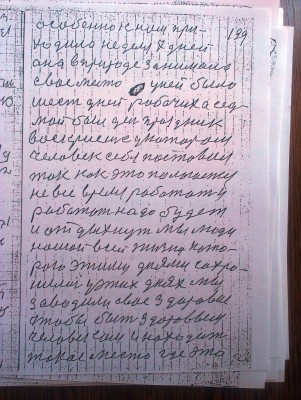 особенно к нам при- 139
ходило неделя 7 дней
она в природе занимала
свое место у ней было
шесть дней рабочих а сед-
мой был ден праздник
воскресение в котором
человек себя поставил
так как это полагается
не все время работат и
работат надо будет
и отдыхнут мы люди
нашой всей жизни кото-
рого этими днями сохра-
в этих днях мы
заводили свое здоровье
чтобы быт здоровым
человеком и находит
такое место где эта